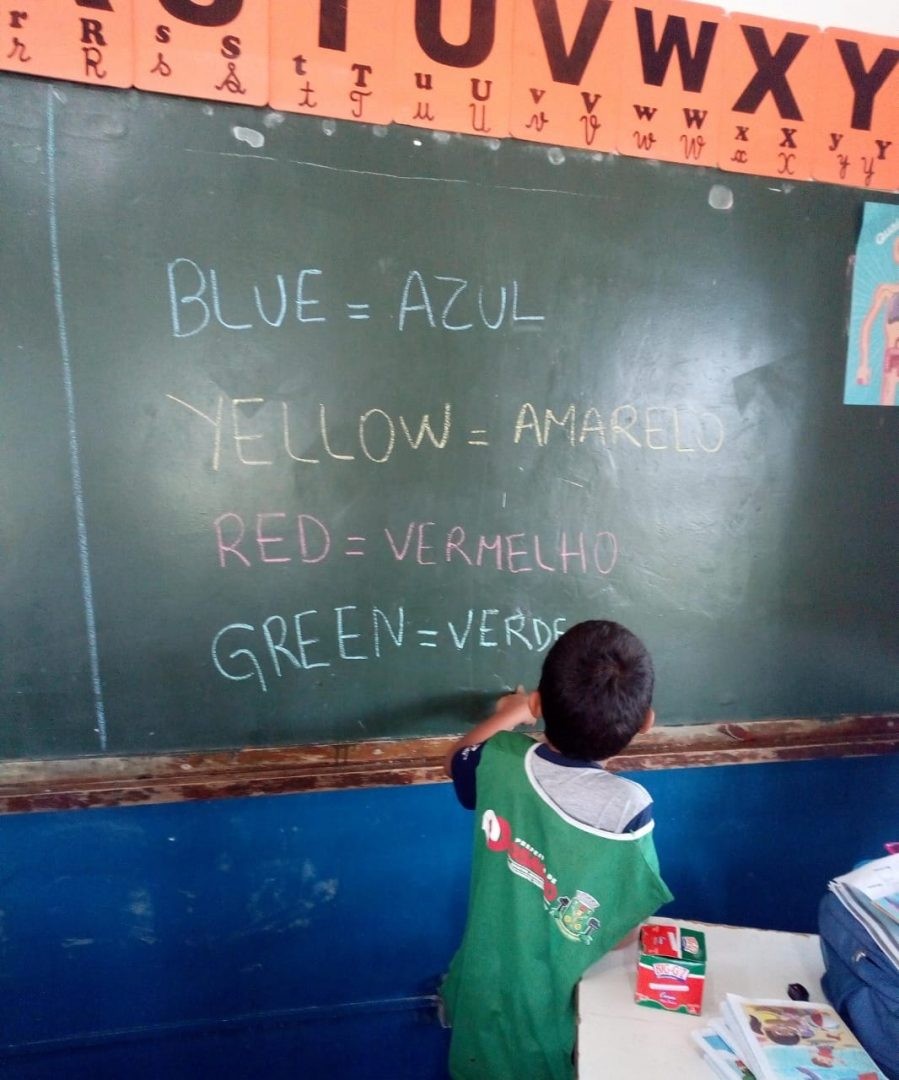 r R S s S T t T U u U V v V W w W X x X Y y Y
r R s S t T u U v V w W x X y y
BLUE = AZUL
YELLOW = AMARELO
RED = VERMELHO
GREEN = VERDE